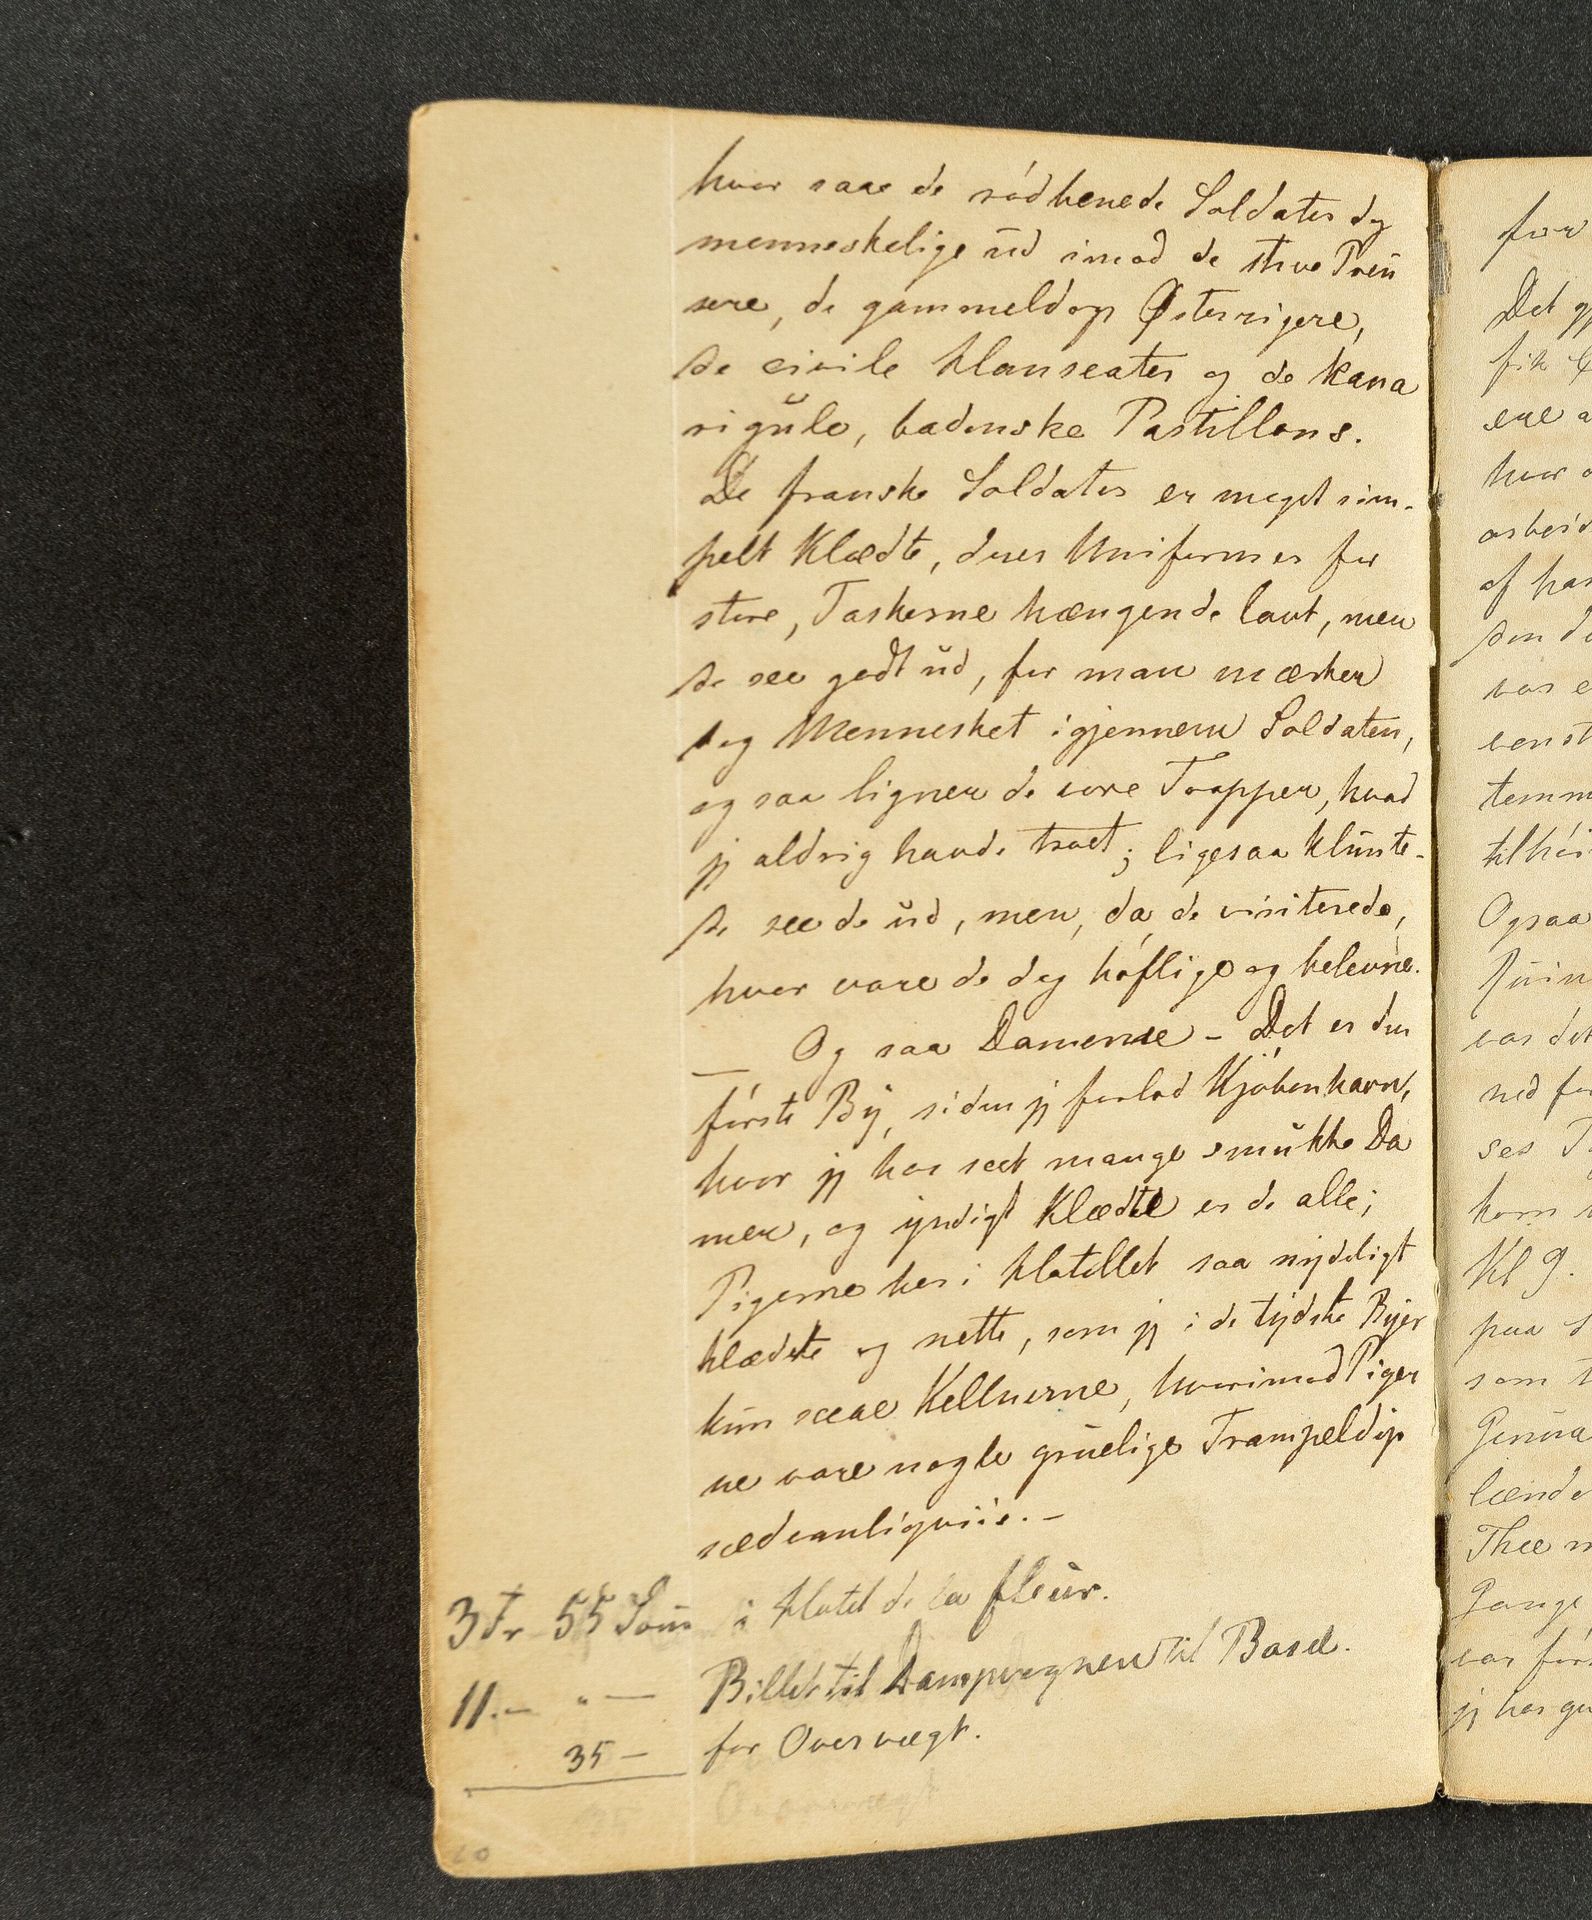 hvor saae de rødbenede Soldater dog
menneskelige ud imod de stive Preu
sere, de gammeldags Østerrigere,
de civile Hanseater og de kana
rigule, badenske Postillons.
De franske Soldater er meget sim-
pelt klædte, deres Uniformer for
store, Taskerne hængende lavt, men
de see godt ud, for man mærker
dog Mennesket igjennem Soldaten,
og saa ligner de vore Tropper, hvad
jeg aldrig havde troet; ligesaa klunte-
de see de ud, men, da de visiterede,
hvor vare de dog høflige og belevne.
— Og saa Damerne – Det er den
første By, siden jeg forlod Kjøbenhavn,
hvor jeg har seet mange smukke Da
mer, og yndigt klædte er de alle;
Pigerne her i Hotellet saa nydeligt
klædte og nette, som jeg i de tydske Byer
kun saae Kellnerne, hvorimod Piger
ne vare nogle gruelige Trampeldyr
sædvanligviis. –
3 Fr 55 Sous i Hotel de la fleur.
11.– " — Billet til Dampvognen til Basel.
35 – for Overvægt.
for
Det
fik
ere
hvor
af
Den
var
temm
Ogsaa
var det
ned for
ses
Kl 9.
paa
som
Genua
Thee
Gange
var
jeg har